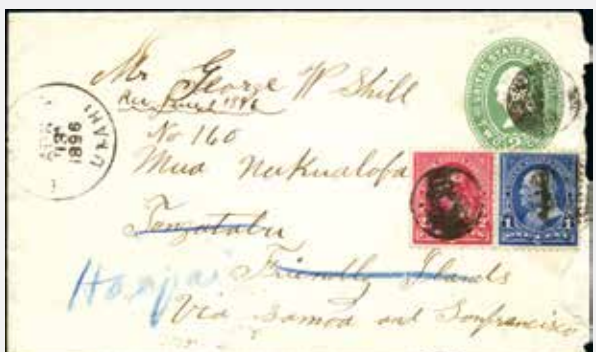 Mr George W Shill
Rec June 1896
No 160
Mua Nukualofa
Tongatabu
Friendly Islands
Haapai
Via Samoa and Sanfrancisco
UNITED STATES
1896
1